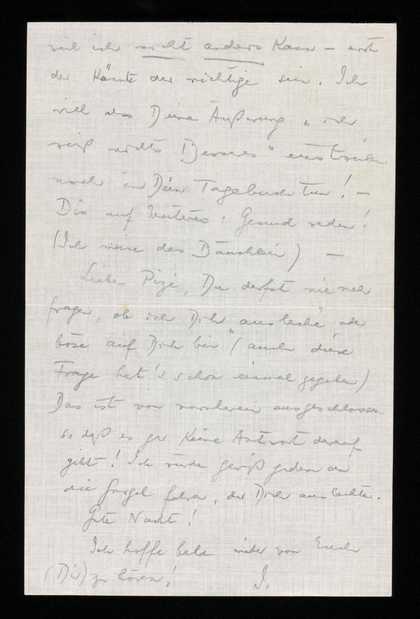 weil ich nicht anders kann – auch
der Käute der richtige sein. Ich
will also Deine Äußerung „ich
weiß nichts Besseres" einstweilen
noch in Dein Tagebuch tun! –
Bis auf Weiteres: Gesund reden!
(Ich meine das Bäuchlein) –
Liebe Pizzi, Du darfst nie mehr
fragen, ob ich Dich auslache oder
böse auf Dich bin (auch diese
Frage hat's schon einmal gegeben)
Das ist von vornherein ausgeschlossen
so daß es gar keine Antwort darauf
gibt! Ich würde gewiß jedem an
die Gurgel fahren, der Dich auslachte.
Gute Nacht!
Ich hoffe bald wieder von Euch
(Dir) zu hören!
I.